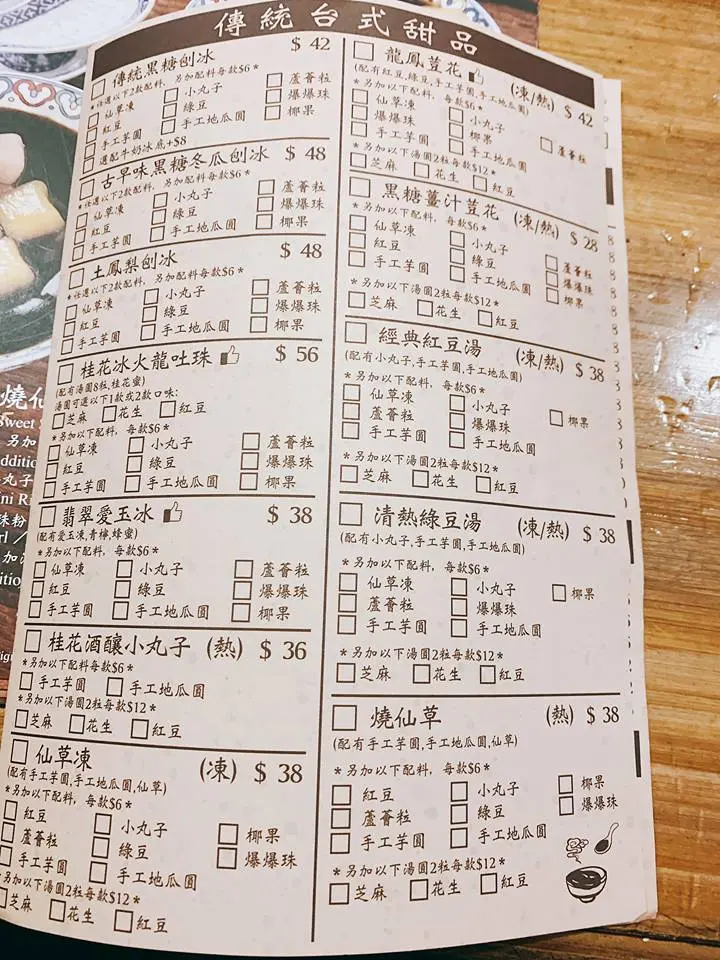 傳統台式甜品
傳統黑糖刨冰 $ 42
*任選以下2款配料, 另加配料每款$6*
仙草凍 小丸子 蘆薈粒
紅豆 綠豆 爆爆珠
手工芋圓 手工地瓜圓 椰果
選配牛奶冰底+$8
古早味黑糖冬瓜刨冰 $ 48
*任選以下2款配料, 另加配料每款$6*
仙草凍 小丸子 蘆薈粒
紅豆 綠豆 爆爆珠
手工芋圓 手工地瓜圓 椰果
土鳳梨刨冰 $ 48
*任選以下2款配料, 另加配料每款$6*
仙草凍 小丸子 蘆薈粒
紅豆 綠豆 爆爆珠
手工芋圓 手工地瓜圓 椰果
桂花冰火龍吐珠 $ 56
(配有湯圓8粒,桂花蜜)
湯圓可選以下1款或2款口味:
芝麻 花生 紅豆
*另加以下配料, 每款$6*
仙草凍 小丸子 蘆薈粒
紅豆 綠豆 爆爆珠
手工芋圓 手工地瓜圓 椰果
翡翠愛玉冰 $ 38
(配有愛玉凍,青檸,蜂蜜)
*另加以下配料, 每款$6*
仙草凍 小丸子 蘆薈粒
紅豆 綠豆 爆爆珠
手工芋圓 手工地瓜圓 椰果
桂花酒釀小丸子 (熱) $ 36
*另加以下配料每款$6*
手工芋圓 手工地瓜圓
*另加以下湯圓2粒每款$12*
芝麻 花生 紅豆
仙草凍 (凍) $ 38
(配有手工芋圓,手工地瓜圓,仙草)
*另加以下配料, 每款$6*
紅豆 小丸子 椰果
蘆薈粒 綠豆 爆爆珠
手工芋圓 手工地瓜圓
*另加以下湯圓2粒每款$12*
芝麻 花生 紅豆
龍鳳荳花 (凍/熱) $ 42
(配有紅豆,綠豆,手工芋圓,手工地瓜圓)
*另加以下配料, 每款$6*
仙草凍 小丸子 蘆薈粒
爆爆珠 椰果
手工芋圓 手工地瓜圓
*另加以下湯圓2粒每款$12*
芝麻 花生 紅豆
黑糖薑汁荳花 (凍/熱) $ 28
*另加以下配料, 每款$6*
仙草凍 小丸子 蘆薈粒
紅豆 綠豆 爆爆珠
手工芋圓 手工地瓜圓 椰果
*另加以下湯圓2粒每款$12*
芝麻 花生 紅豆
經典紅豆湯 (凍/熱) $ 38
(配有小丸子,手工芋圓,手工地瓜圓)
*另加以下配料, 每款$6*
仙草凍 小丸子 椰果
蘆薈粒 爆爆珠
手工芋圓 手工地瓜圓
*另加以下湯圓2粒每款$12*
芝麻 花生 紅豆
清熱綠豆湯 (凍/熱) $ 38
(配有小丸子,手工芋圓,手工地瓜圓)
*另加以下配料, 每款$6*
仙草凍 小丸子 椰果
蘆薈粒 爆爆珠
手工芋圓 手工地瓜圓
*另加以下湯圓2粒每款$12*
芝麻 花生 紅豆
燒仙草 (熱) $ 38
(配有手工芋圓,手工地瓜圓,仙草)
*另加以下配料, 每款$6*
紅豆 小丸子 椰果
蘆薈粒 綠豆 爆爆珠
手工芋圓 手工地瓜圓
*另加以下湯圓2粒每款$12*
芝麻 花生 紅豆
燒仙
Sweet
另加